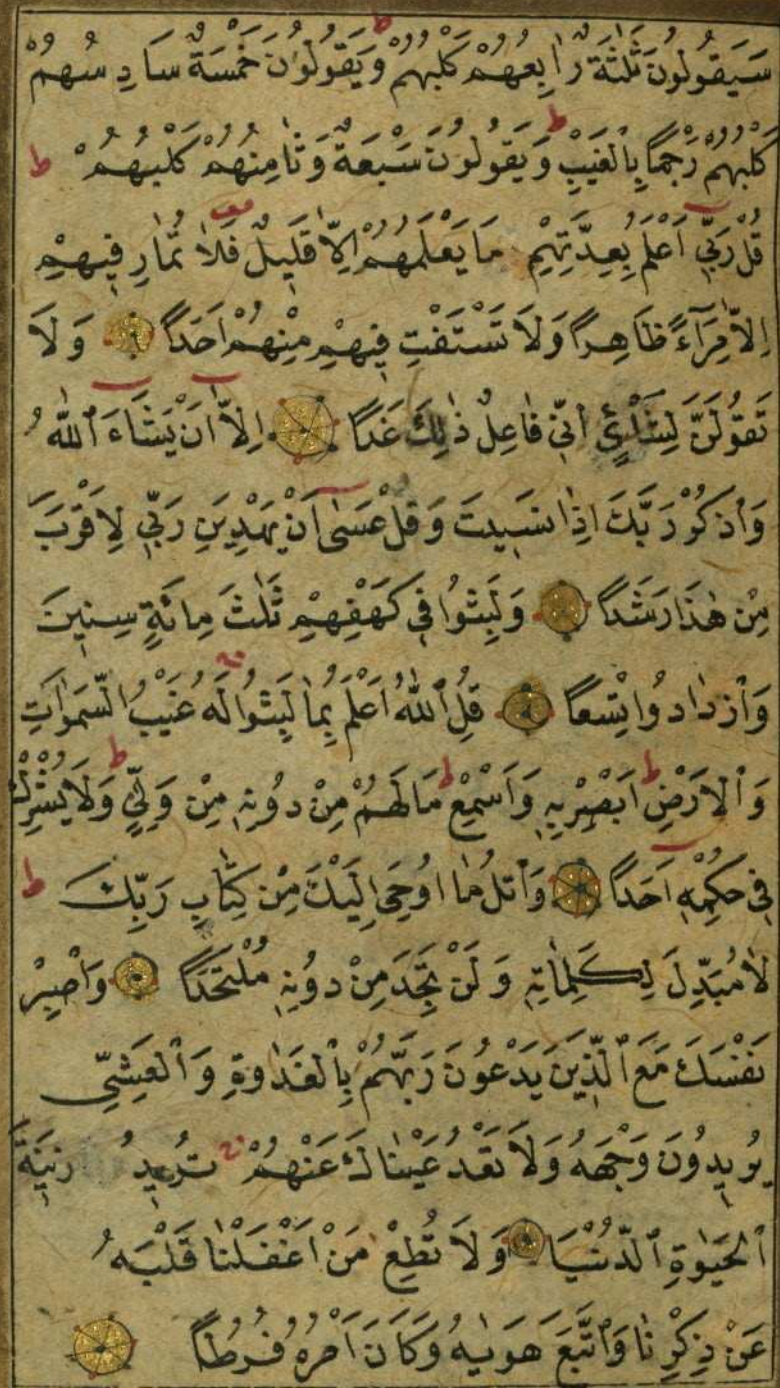 سَيَقُولُونَ ثَلٰثَةٌ رَابِعُهُمْ كَلْبُهُمْ ط وَيَقُولُونَ خَمْسَةٌ سَادِسُهُمْ
كَلْبُهُمْ رَجْمًا بِالْغَيْبِ ط وَيَقُولُونَ سَبْعَةٌ وَثَامِنُهُمْ كَلْبُهُمْ ط
قُلْ رَبِّي اَعْلَمُ بِعِدَّتِهِمْ مَا يَعْلَمُهُمْ اِلَّا قَلِيلٌ فَلَا تُمَارِ فِيهِمْ
اِلَّا مِرَآءً ظَاهِرًا وَلَا تَسْتَفْتِ فِيهِمْ مِنْهُمْ اَحَدًا وَلَا
تَقُولَنَّ لِشَایْءٍ اِنِّي فَاعِلٌ ذٰلِكَ غَدًا اِلَّا اَنْ يَشَاءَ ٱللّٰهُ
وَٱذْكُرْ رَبَّكَ اِذَا نَسِيتَ وَقُلْ عَسٰى اَنْ يَهْدِيَنِ رَبِّي لِاَقْرَبَ
مِنْ هٰذَا رَشَدًا وَلَبِثُوا فِي كَهْفِهِمْ ثَلٰثَ مِائَةٍ سِنِينَ
وَٱزْدَادُوا تِسْعًا قُلِ ٱللّٰهُ اَعْلَمُ بِمَا لَبِثُوا لَهُ غَيْبُ السَّمٰوَاتِ
وَٱلْاَرْضِ ط اَبْصِرْ بِهِ وَاَسْمِعْ ط مَا لَهُمْ مِنْ دُونِهِ مِنْ وَلِيٍّ ط وَلَا يُشْرِكُ
فِي حُكْمِهِ اَحَدًا وَٱتْلُ مَا اُوحِيَ اِلَيْكَ مِنْ كِتَابِ رَبِّكَ ط
لَا مُبَدِّلَ لِكَلِمَاتِهِ وَلَنْ تَجِدَ مِنْ دُونِهِ مُلْتَحَدًا وَٱصْبِرْ
نَفْسَكَ مَعَ ٱلَّذِينَ يَدْعُونَ رَبَّهُمْ بِٱلْغَدٰوةِ وَٱلْعَشِيِّ
يُرِيدُونَ وَجْهَهُ وَلَا تَعْدُ عَيْنَاكَ عَنْهُمْ تُرِيدُ زِينَةَ
ٱلْحَيٰوةِ ٱلدُّنْيَا وَلَا تُطِعْ مَنْ اَغْفَلْنَا قَلْبَهُ
عَنْ ذِكْرِنَا وَٱتَّبَعَ هَوٰيهُ وَكَانَ اَمْرُهُ فُرُطًا